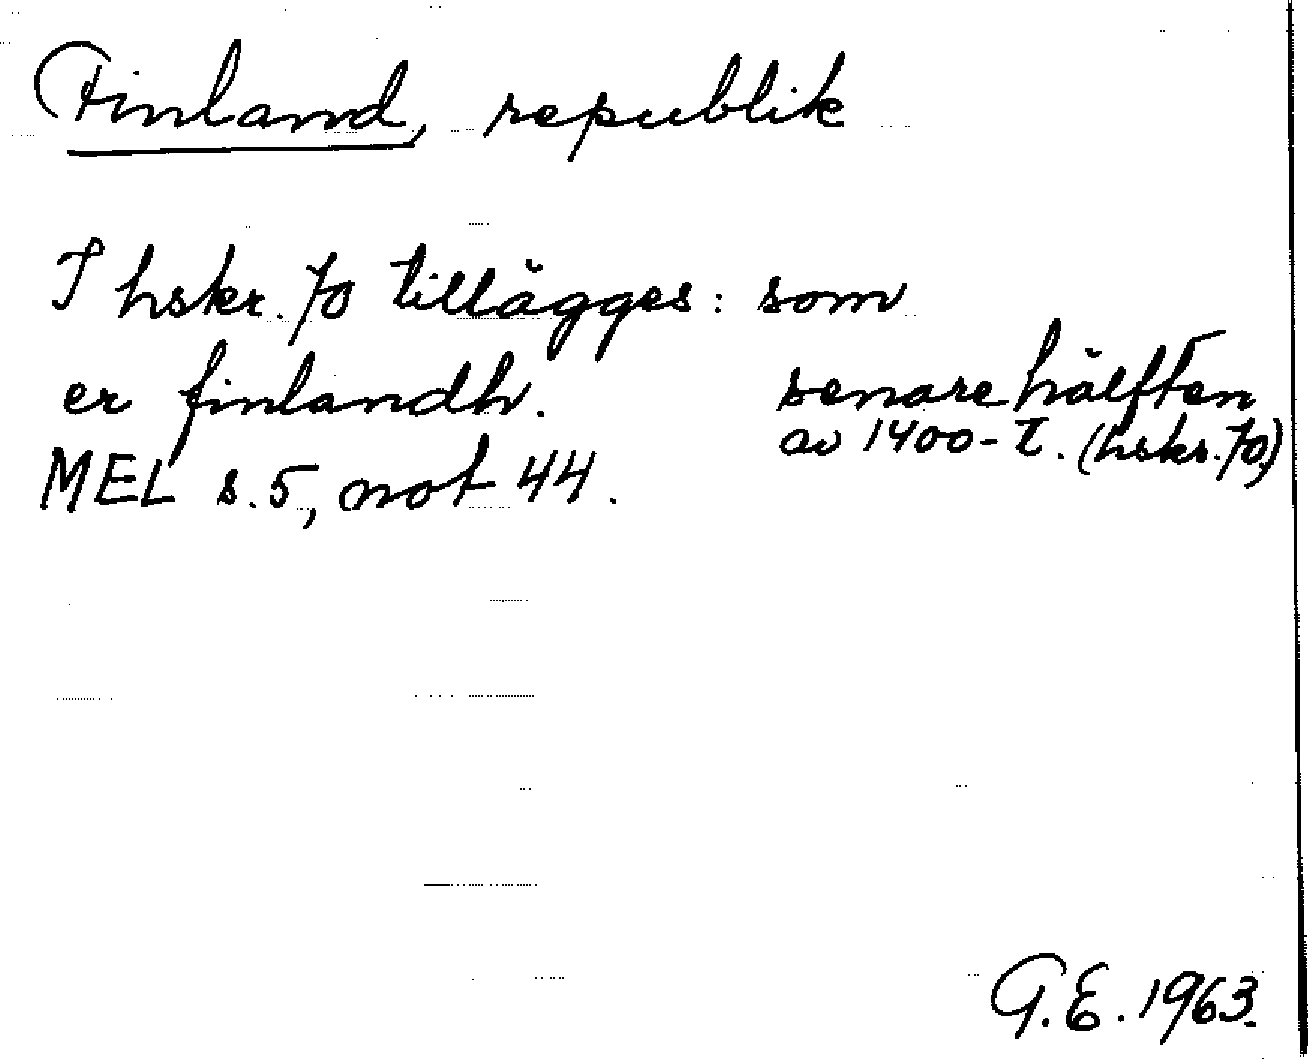 Finland, republik
I hskr. 70 tillägges: som
er finlandh.
senare hälften
av 1400-t. (hskr. 70.)
MEL s. 5, not 44.
G.E. 1963.